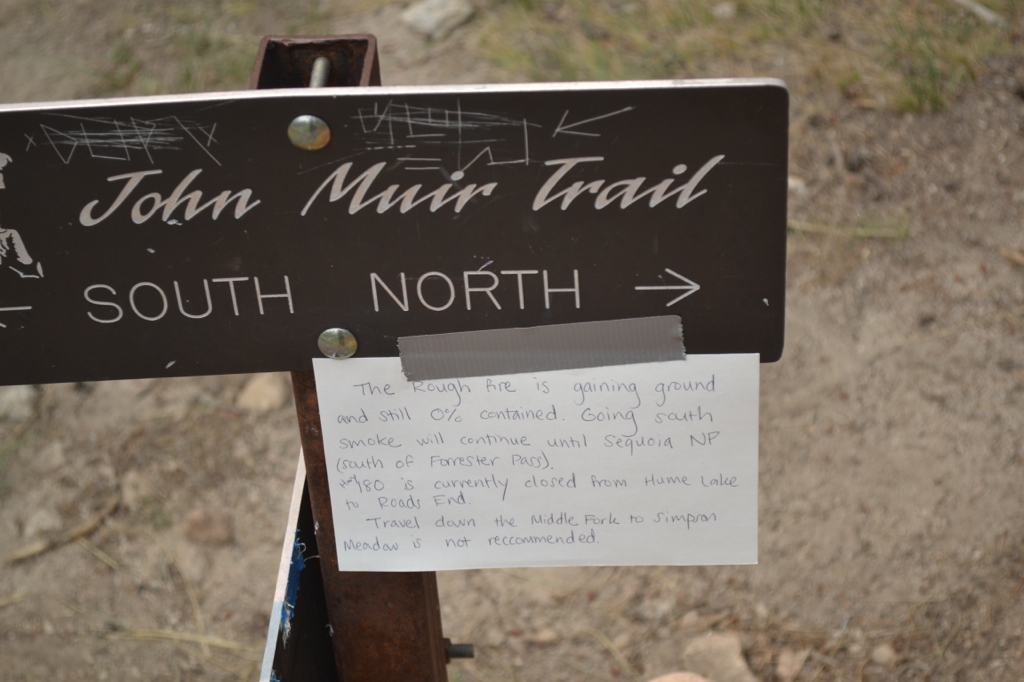 John Muir Trail
SOUTH NORTH
The Rough fire is gaining ground
and still 0% contained. Going south
smoke will continue until Sequoia NP
(south of Forrester Pass).
Hwy 180 is currently closed from Hume Lake
to Roads End.
Travel down the Middle Fork to Simpson
Meadow is not reccommended.